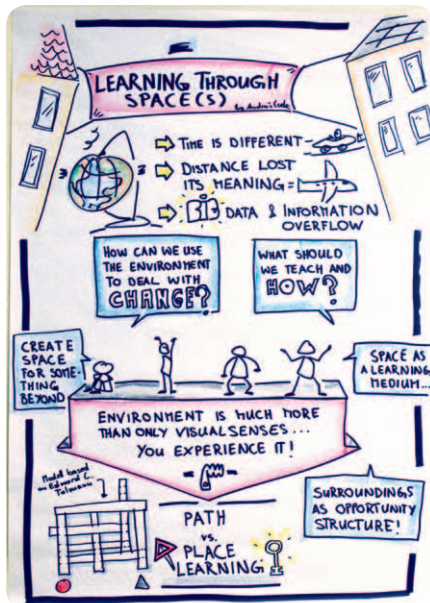 LEARNING THROUGH
SPACE(S)
TIME IS DIFFERENT
DISTANCE LOST
ITS MEANING =
BIG DATA & INFORMATION
OVERFLOW
HOW CAN WE USE
THE ENVIRONMENT
TO DEAL WITH
CHANGE?
WHAT SHOULD
WE TEACH AND
HOW?
CREATE
SPACE
FOR SOME-
THING
BEYOND
SPACE AS
A LEARNING
MEDIUM...
ENVIRONMENT IS MUCH MORE
THAN ONLY VISUAL SENSES...
YOU EXPERIENCE IT!
Model based
on Edward C.
Tolmann
SURROUNDINGS
AS OPPORTUNITY
STRUCTURE!
PATH
vs.
PLACE
LEARNING